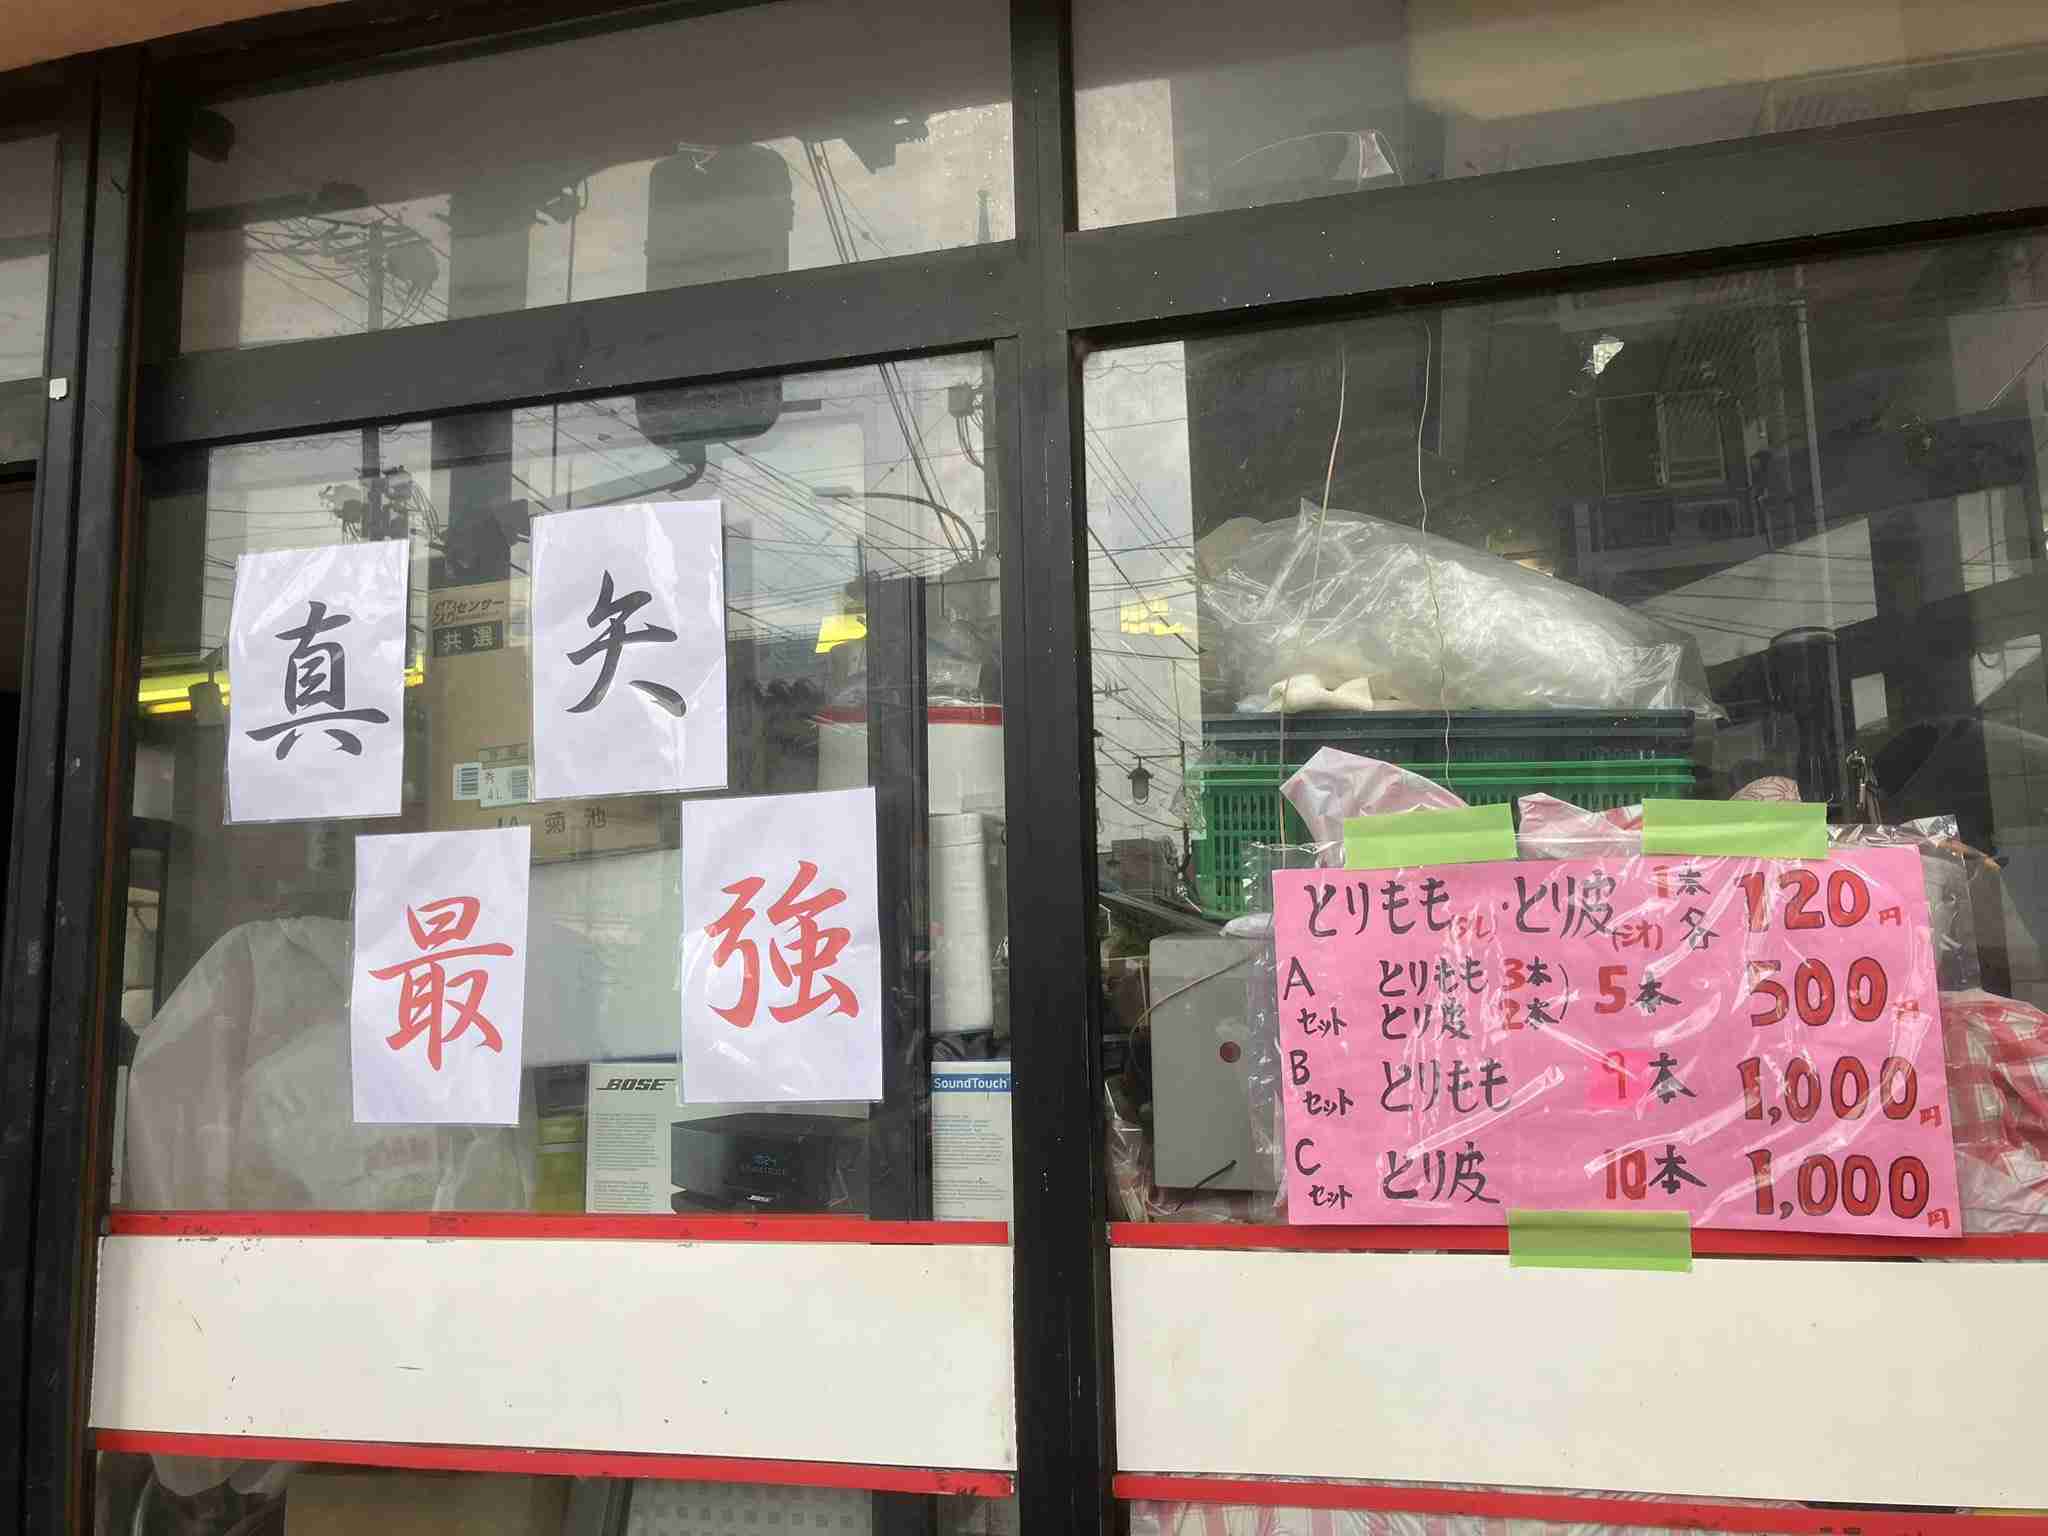 真
矢
最
強
センサー
共選
秀
4L
JA 菊池
BOSE
SoundTouch
BOSE
とりもも(タレ)・とり皮(シオ) 1本各 120円
Aセット とりもも 3本 とり皮 2本) 5本 500円
Bセット とりもも 9本 1,000円
Cセット とり皮 10本 1,000円